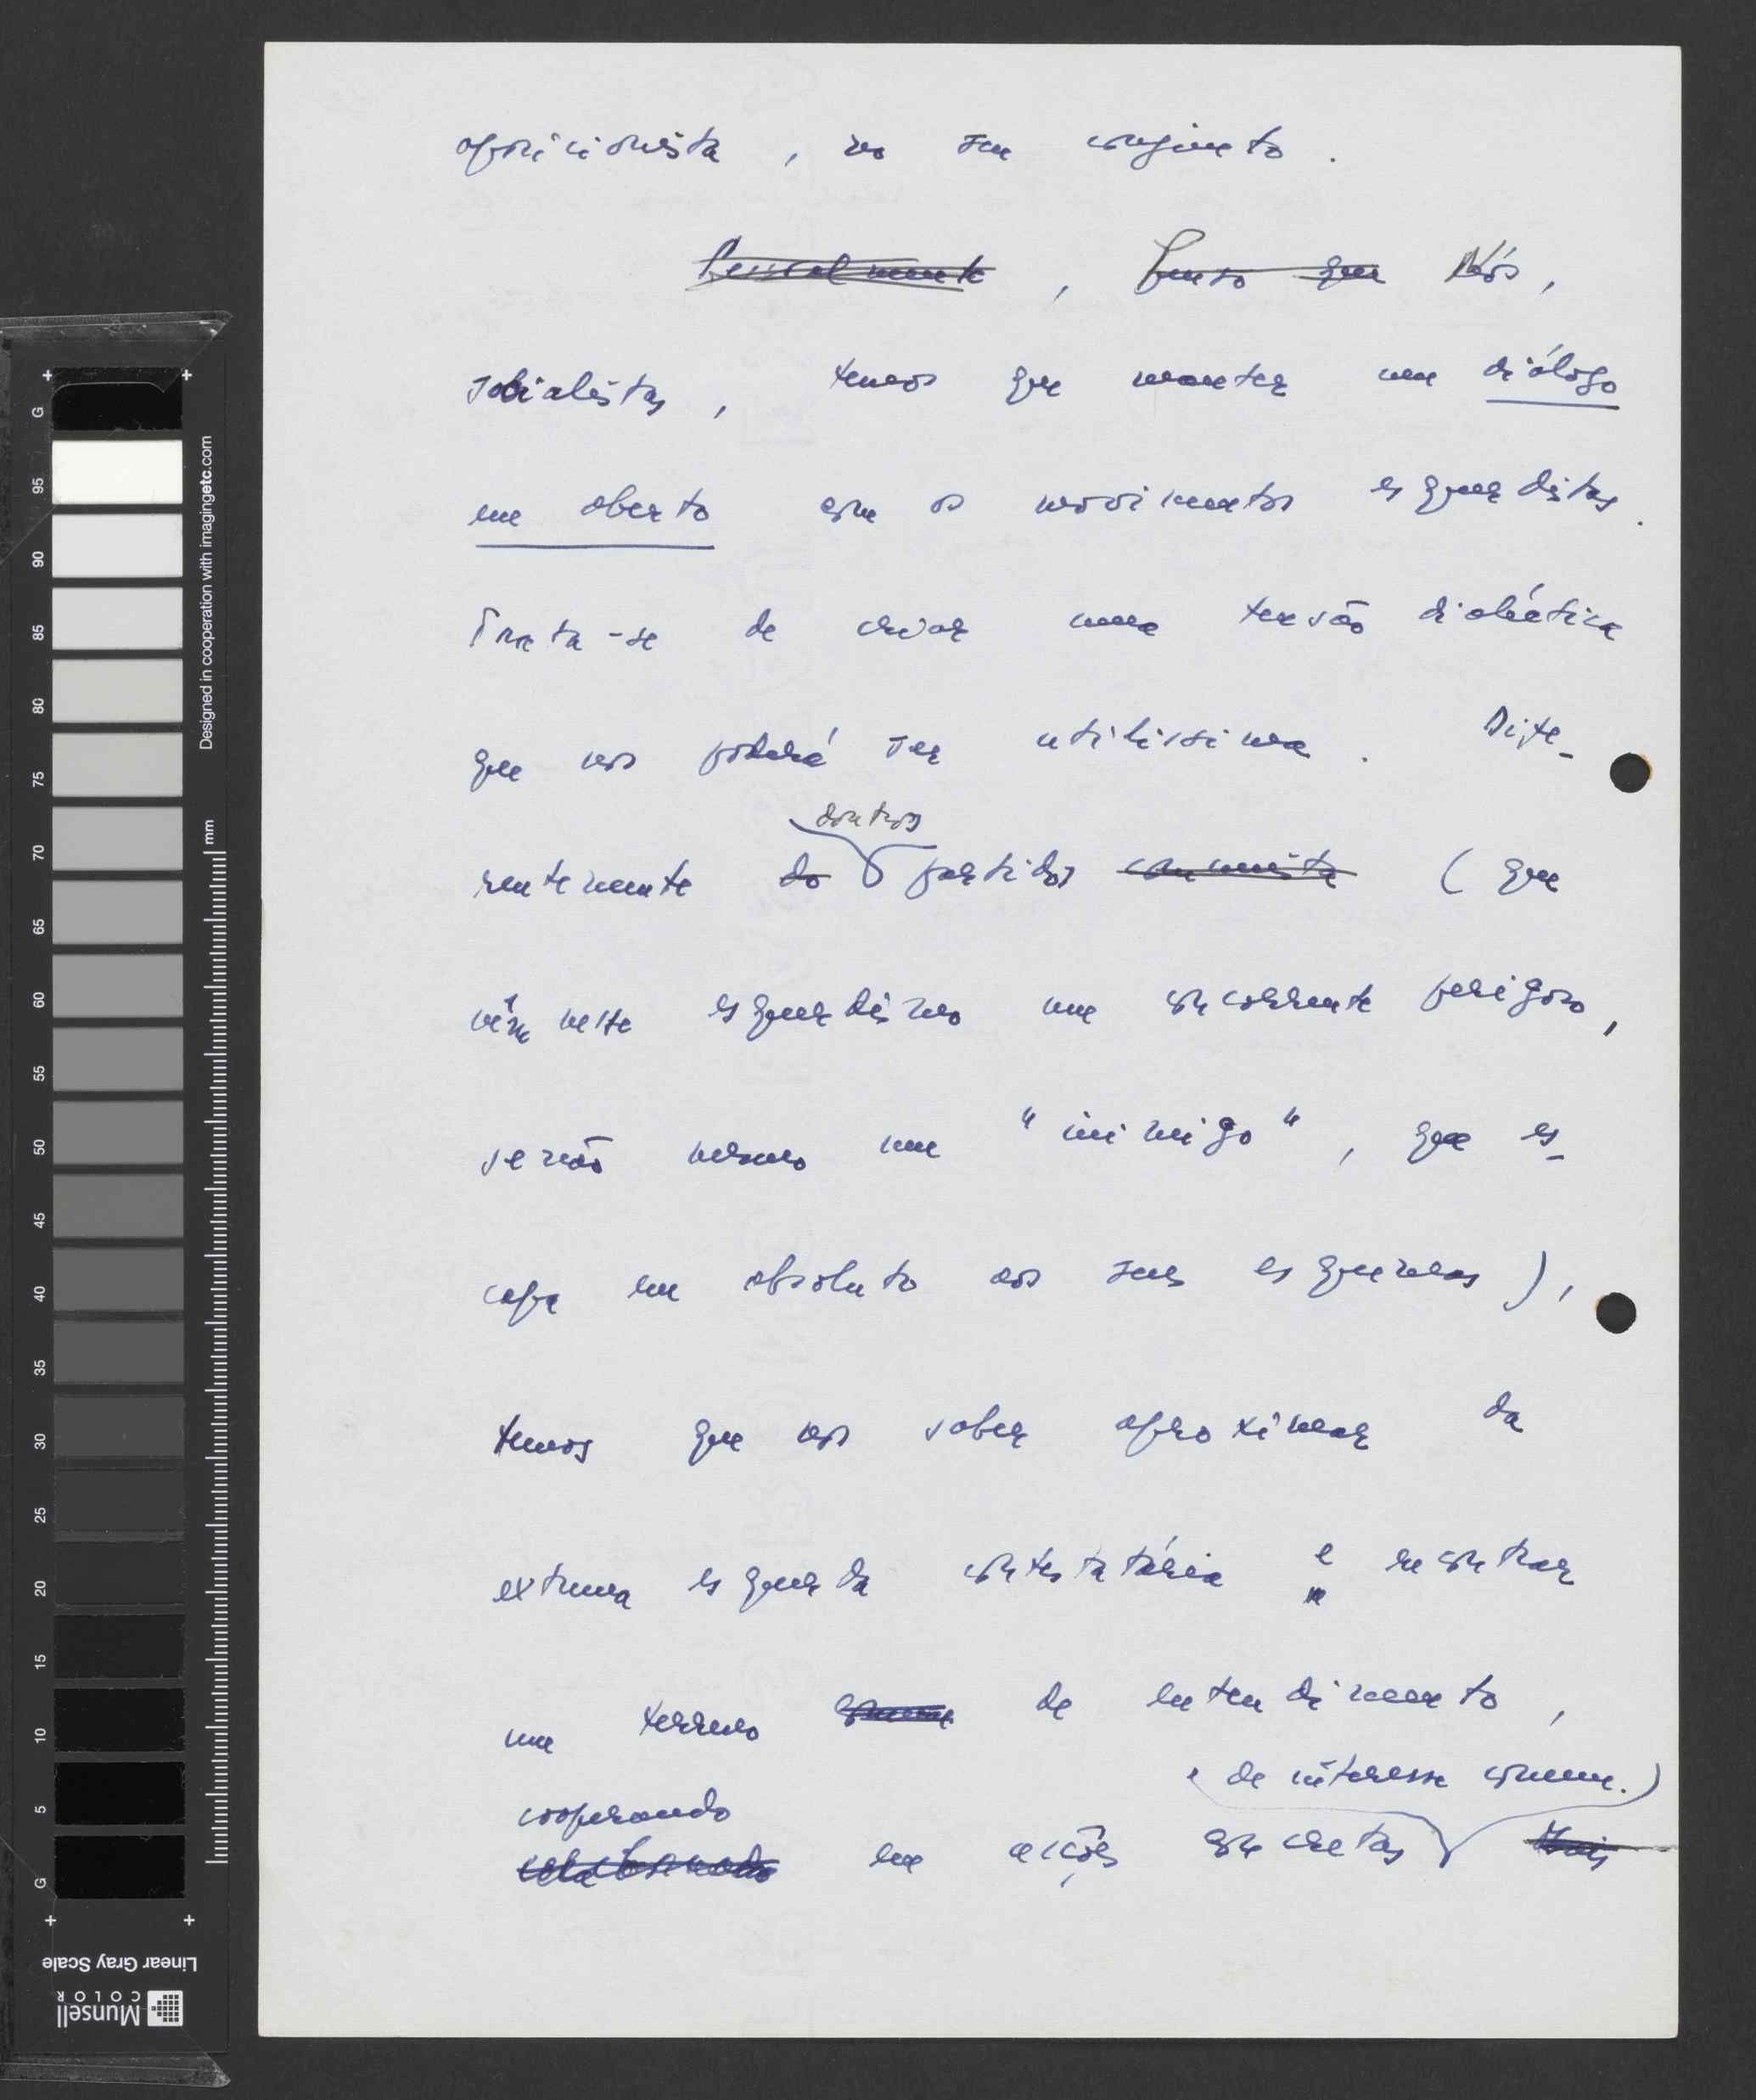 oposicionista, no seu conjunto.
Pessoalmente, penso que Nós,
socialistas, temos que manter um diálogo
em aberto com os movimentos esquerdistas.
Trata-se de criar uma tensão dialéctica
que nos poderá ser utilíssima. Dife-
doutros
rentemente do partidos comunista (que
vêm neste esquerdismo um concorrente perigoso,
senão mesmo um "inimigo", que es-
capa em absoluto aos seus esquemas),
temos que nos saber aproximar da
extrema esquerda contestatária e encontrar
um terreno comum de entendimento,
cooperando
e de interesse comum.)
colaborando em acções concretas Mais
G
95
90
85
80
75
70
65
60
55
50
45
40
35
30
25
20
15
10
5
G
Designed in cooperation with imagingetc.com
mm
Linear Gray Scale
Munsell
COLOR